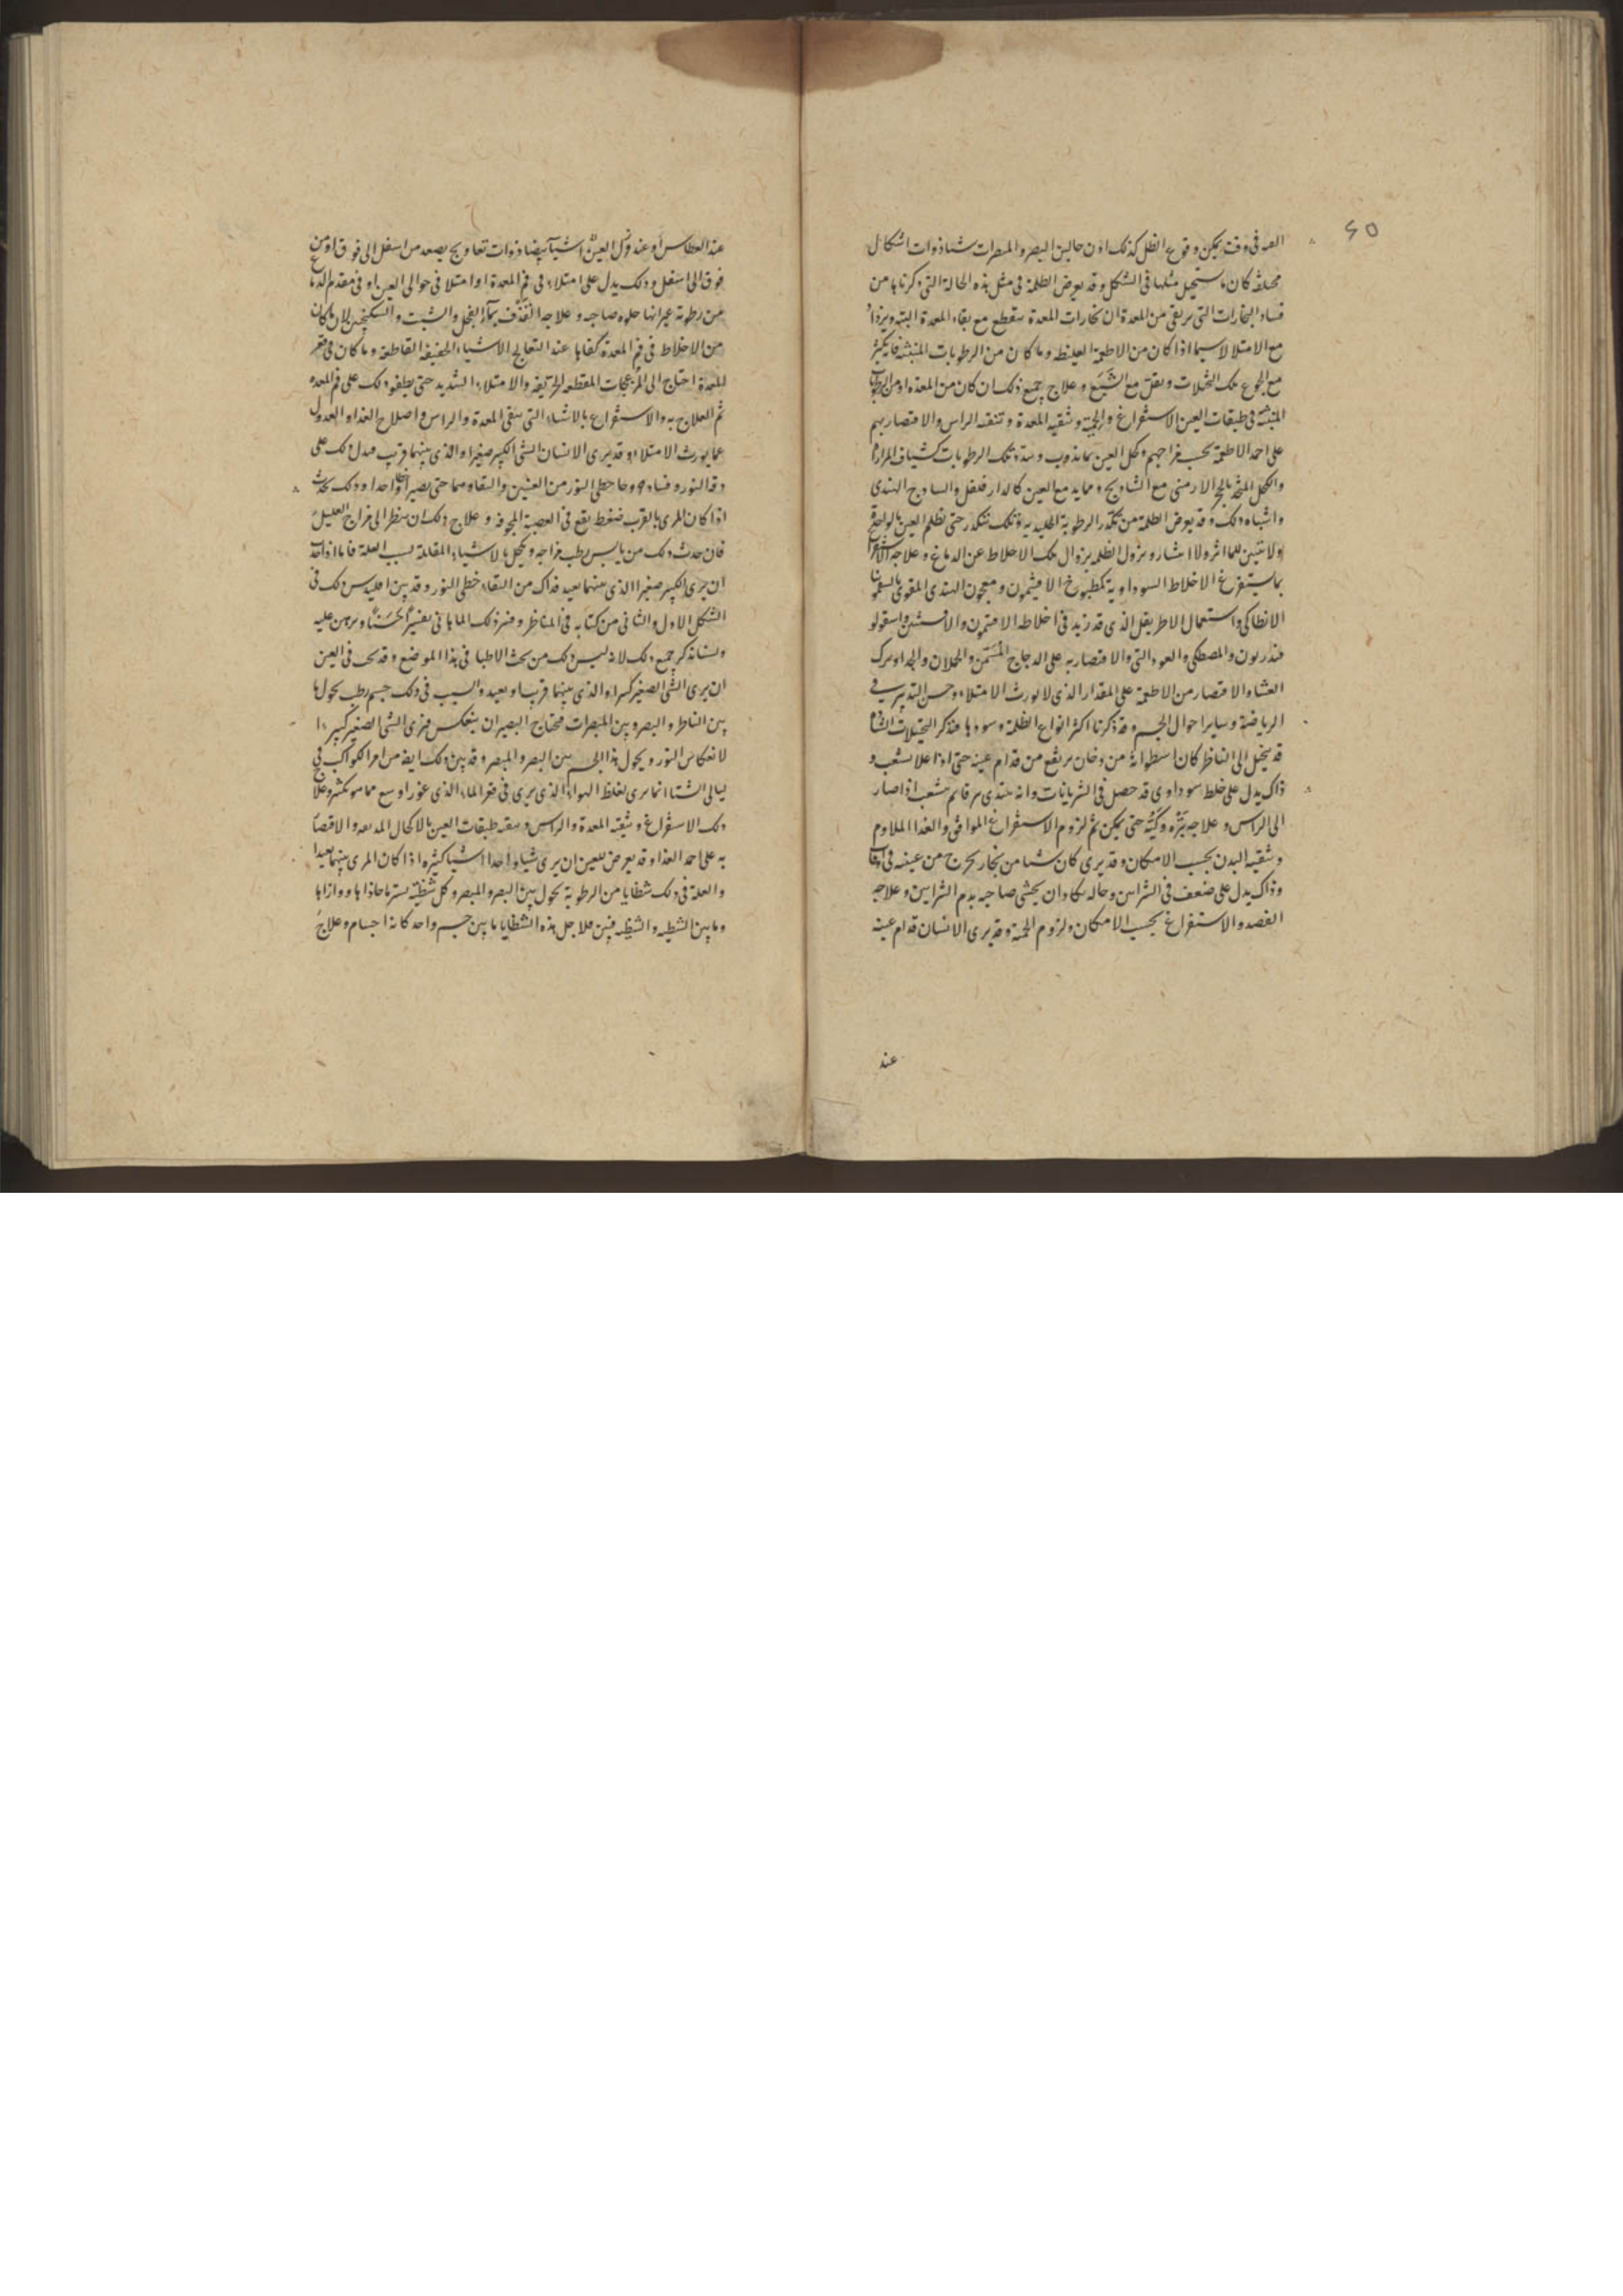 ٤٥
الغد فى وقت يمكن وقوع الظل كذلك اذن حال بين البصر والمبصرات شيئا ذوات اشكال
مختلفة كان يستحيل مثلها فى الشكل وقد يعرض الظلمة فى مثل هذه الحالة التى ذكرناها من
فساد البخارات التى ترتقى من المعدة ان بخارات المعدة ينقطع مع نقاء المعدة البتة ويزداد
مع الامتلا لا سيما اذا كان من الاطعمة الغليظة وما كان من الرطوبات المنبثة فانه يكثر
مع الجوع تلك التخيلات ويقل مع الشبع وعلاج جميع ذلك ان كان من المعدة او من الرطوبات
المنبثة فى طبقات العين الاستفراغ والحمية وتنقية المعدة وتنقية الراس والاقتصار بهم
على احد الاطعمة بحسب مزاجهم وكحل العين بما يذوب تلك الرطوبات كشياف المرارات
والكحل المتخذ بالحجر الارمنى مع الشادنج وما يدمع العين كالدار فلفل والساذج الهندى
واشباه ذلك وقد يعرض الظلمة من تكدر الرطوبة الجليدية وتلك تتكدر حتى تظلم العين بالواحدة
ولا يتبين للماء اثر ولا انتشار ويزول الظلمة بزوال تلك الاخلاط عن الدماغ وعلاجه الاستفراغ
بما يستفرغ الاخلاط السوداوية كمطبوخ الافيثمون ومعجون الهندى المقوى بالسقمونيا
الانطاكى واستعمال الاطريفل الذى قد زيد فى اخلاطه الافتيمون والافسنتين واسقولو
قندريون والمصطكى والعود التى والاقتصار به على الدجاج المسمن والحملان والجدا وترك
العشا والاقتصار من الاطعمة على المقدار الذى لا يورث الامتلاء وحسن التدبير فى
الرياضة وساير احوال الجسم وقد ذكرنا اكثر انواع الظلمة وسوادها فنذكر التخيلات الشاذة
قد يخيل الى الناظر كان اسطوانة من دخان يرتفع من قدام عينه حتى اذا علا تشعب و
ذاك يدل على خلط سوداوى قد حصل فى الشريانات وانه يبتدى يرقا ثم يتشعب اذا صار
الى الراس وعلاجه بتره وكيه حتى يمكن ثم لزوم الاستفراغ الموافق والغذا الملاوم
وتنقية البدن بحسب الامكان وقد يرى كان شيئا من بخار يخرج من عينه فى اوقات
وذاك يدل على ضعف فى الشرايين وحاله يكاد ان يحشى صاحبه بدم الشرايين وعلاجه
الفصد والاستفراغ بحسب الامكان ولزوم الحمية وقد يرى الانسان قدام عينه
عند
عند العطاس او عند دلك العين اشياء بيضا ذوات تعاويج يصعد من اسفل الى فوق او من
فوق الى اسفل وذلك يدل على امتلاء فى فم المعدة او امتلا فى حوالى العين او فى مقدم الدماغ
من رطوبة غير انها حلوه صاحبه وعلاجه القذف بماء الفجل والشبت والسكنجبين لان ما كان
من الاخلاط فى فم المعدة كفاها عند التعالج الاشياء الخفيفة القاطعة وما كان فى قعر
المعدة احتاج الى المزعجات المقطعة الحريفة والامتلاء الشديد حتى يطفو ذلك على فم المعدة
ثم العلاج به والاستفراغ بالاشياء التى ينقى المعدة والراس واصلاح الغذا والعدول
عما يورث الامتلاء وقد يرى الانسان الشئ الكبير صغيرا والذى بينهما قريب فيدل ذلك على
دقة النور وفساده وحا خطى النور من العينين والتقاوهما حتى يصير افقا واحدا وذلك يحدث
اذا كان المرى بالقرب ضغط يقع فى العصبة المجوفة وعلاج ذلك ان ينظر الى مزاج العليل
فان حدث ذلك من يابس رطب مزاجه وكحل بالاشياء المقابلة لسبب العلة فاما اذا حدث
ان يرى الكبير صغيرا الذى بينهما بعيد فذاك من التقاء خطى النور وقد بين اقليدس ذلك فى
الشكل الاول والثانى من كتابه فى المناظر وفسر ذلك الماهانى تفسيرا حسنا وبرهن عليه
ولسنا نذكر جميع ذلك لانه ليس ذلك من بحث الاطبا فى هذا الموضع وقد يحدث فى العين
ان يرى الشئ الصغير كبيرا والذى بينهما قريب او بعيد والسبب فى ذلك جسم رطب يحول ما
بين الناظر والبصر وبين المبصرات فيحتاج البصر ان ينعكس فيرى الشئ الصغير كبيرا
لانعكاس النور ويحول هذا الجسم بين البصر والمبصر وقد يتبين ذلك ايضا من امر الكواكب فى
ليالى الشتا انما يرى لغلظ الهواء والذى يرى فى قعر الماء الذى غورا وسع مما هو بكثير وعلاج
ذلك الاستفراغ وتنقية المعدة والراس وتنقية طبقات العين بالاكحال المدمعة والاقتصار
به على احد الغذا وقد يعرض للعين ان يرى شيئا واحدا اشيا كثيرة اذا كان المرى بينهما بعيدا
والعلة فى ذلك شظايا من الرطوبة يحول بين البصر والمبصر وكل شظية يستر ما حاذاها ووازاها
وما بين الشظية والشظية فبين فلاجل هذه الشظايا ما بين جسم واحد كانه اجسام وعلاج